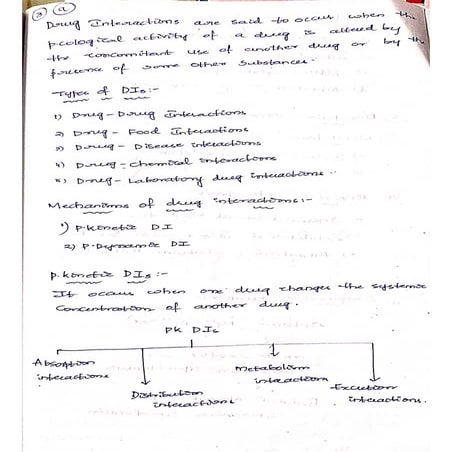 3 a
Drug Interactions are said to occur when the
p.cological activity of a drug is altered by
the concomitant use of another drug or by the
presence of some other substances.
Types of DIs :-
1) Drug - Drug Interactions
2) Drug - Food Interactions
3) Drug - Disease interactions
4) Drug - chemical interactions
5) Drug - Laboratory drug interactions
Mechanisms of drug interactions :-
1) P.kinetic D.I
2) P.Dynamic DI
p.kinetic DIs :-
It occurs when one drug changes the systemic
Concentration of another drug.
PK DIs
Absorption
interactions
Distribution
interactions
metabolism
interactions
Excretion
interactions.